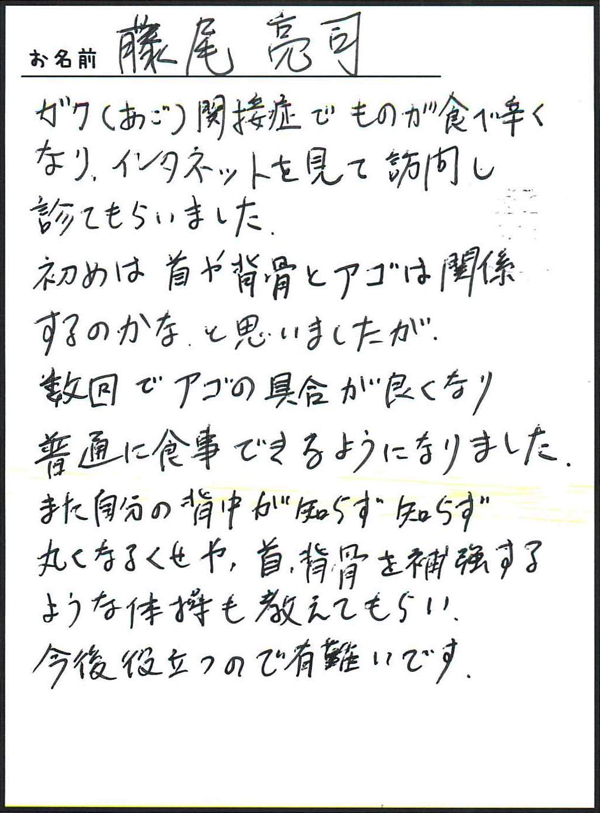 お名前 藤尾 亮司
ガク(あご)関接症でものが食べ辛く
なり、インタネットを見て訪問し
診てもらいました。
初めは首や背骨とアゴは関係
するのかな、と思いましたが、
数回でアゴの具合が良くなり
普通に食事できるようになりました。
また自分の背中が知らず知らず
丸くなるくせや、首、背骨を補強する
ような体操も教えてもらい、
今後役立つので有難いです。